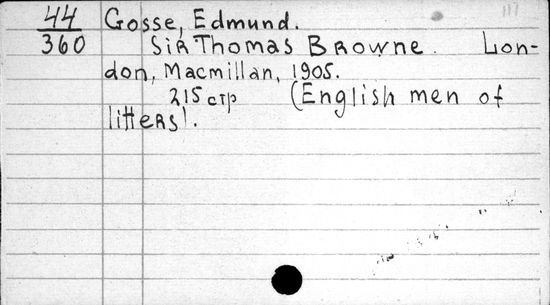 44 Gosse, Edmund.
360 Sir Thomas Browne. Lon-
don, Macmillan, 1905.
215 стр (English men of
litters).